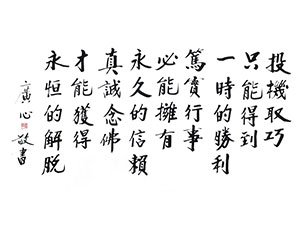 投機取巧
只能得到
一時的勝利
篤實行事
必能擁有
永久的信賴
真誠念佛
才能獲得
永恒的解脫
廣心敬書